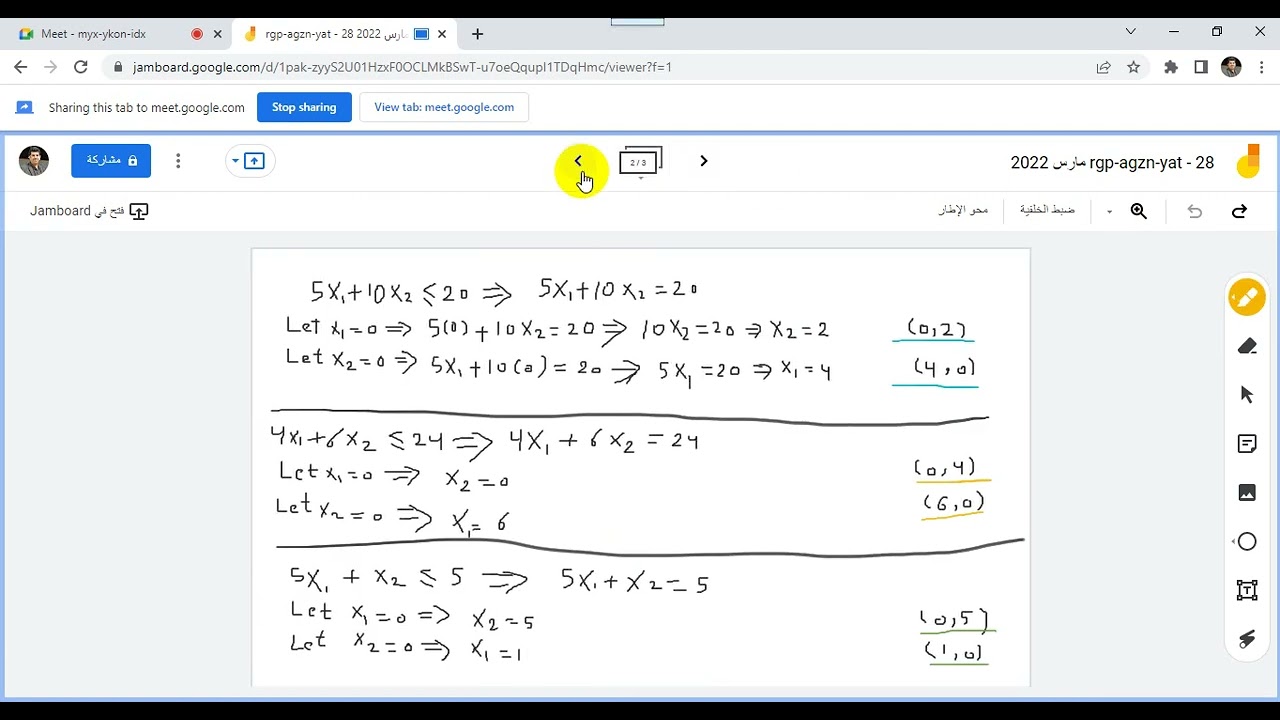 Meet - myx-ykon-idx
rgp-agzn-yat - 28 مارس 2022
jamboard.google.com/d/1pak-zyyS2U01HzxF0OCLMkBSwT-u7oeQgupI1TDqHmc/viewer?f=1
Sharing this tab to meet.google.com
Stop sharing
View tab: meet.google.com
مشاركة
2 / 3
rgp-agzn-yat - 28 مارس 2022
فتح في Jamboard
محو الإطار
ضبط الخلفية
5X₁+10X₂ ≤ 20 ⇒ 5X₁+10X₂ = 20
Let x₁=0 ⇒ 5(0)+10X₂=20 ⇒ 10X₂=20 ⇒ X₂=2 (0,2)
Let X₂=0 ⇒ 5X₁+10(0)=20 ⇒ 5X₁=20 ⇒ X₁=4 (4,0)
4X₁+6X₂ ≤ 24 ⇒ 4X₁+6X₂=24
Let x₁=0 ⇒ X₂=0 (0,4)
Let X₂=0 ⇒ X₁=6 (6,0)
5X₁+X₂ ≤ 5 ⇒ 5X₁+X₂=5
Let X₁=0 ⇒ X₂=5 (0,5)
Let X₂=0 ⇒ X₁=1 (1,0)